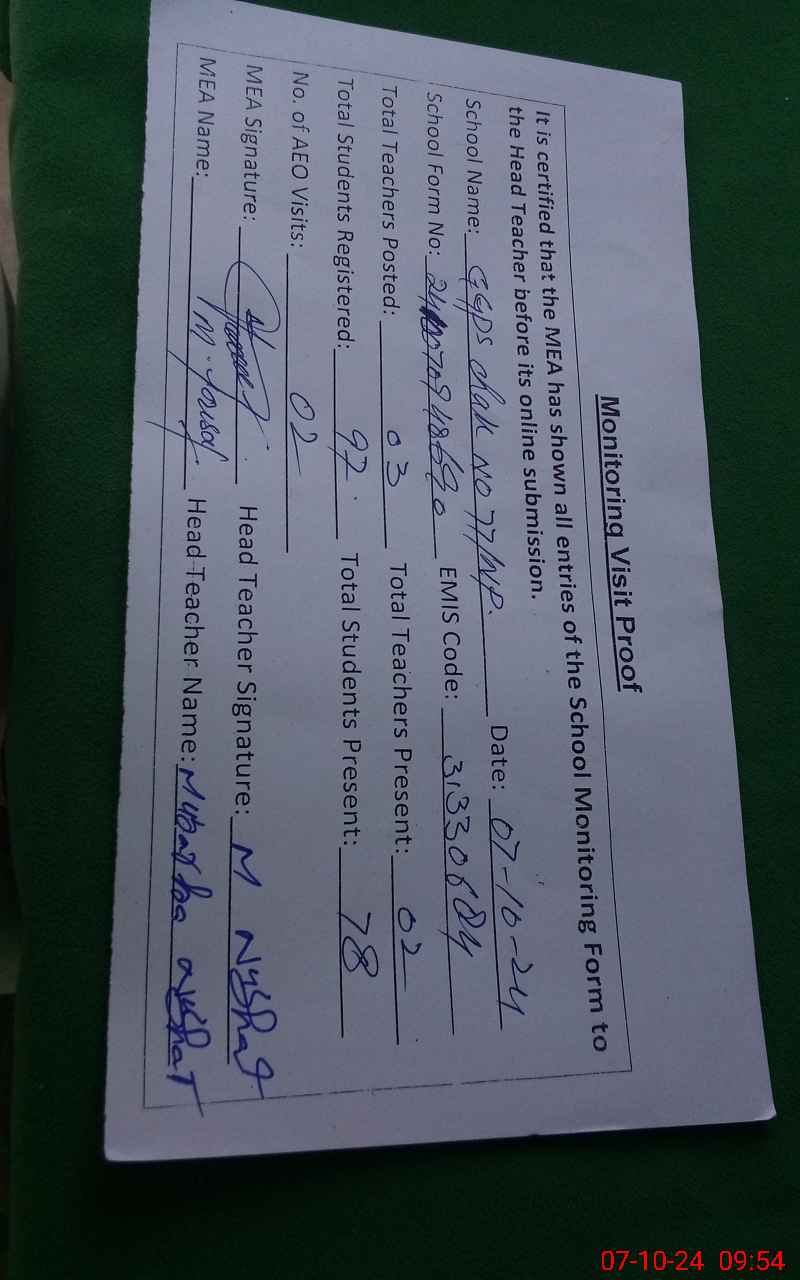 Monitoring Visit Proof
It is certified that the MEA has shown all entries of the School Monitoring Form to
the Head Teacher before its online submission.
School Name: GGPS chak NO 77/WP. Date: 07-10-24
School Form No: EMIS Code: 31330684
Total Teachers Posted: 03 Total Teachers Present: 02
Total Students Registered: 97 Total Students Present: 78
No. of AEO Visits: 02
MEA Signature: Head Teacher Signature: M Nushat
MEA Name: M. Yousaf Head Teacher Name: Nushat
07-10-24 09:54